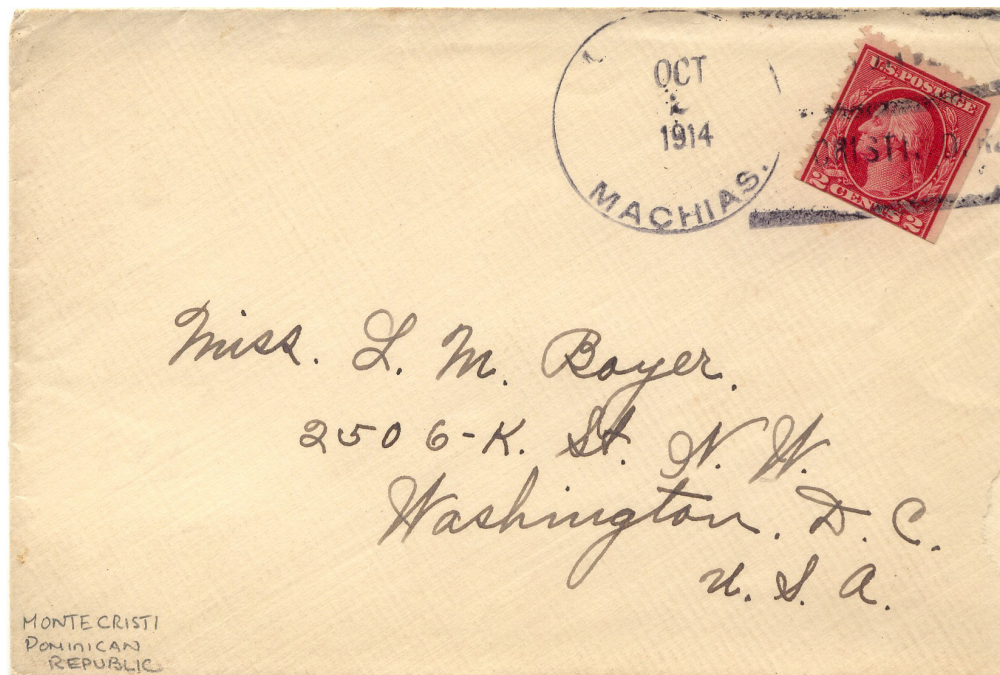 OCT
1914
MACHIAS.
U.S. POSTAGE
CRISTI. D.
2 CENTS 2
Miss. L. M. Boyer.
2506-K. St. N. W.
Washington. D. C.
U. S. A.
MONTECRISTI
DOMINICAN
REPUBLIC